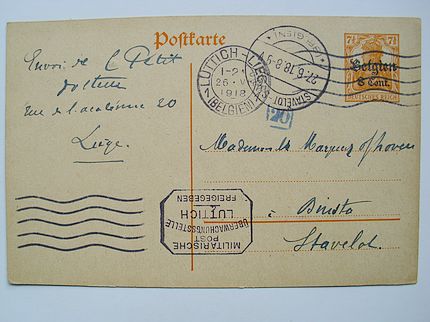 Postkarte
Envoi de C Petit
docteur
rue de l'académie 20
Liége.
LÜTTICH - LIÉGE
1-2
26. V
1918
1 (BELGIEN) 1
STAVELOT
27-5 18.8-9
7½ 7½
Belgien
8 Cent.
DEUTSCHES REICH
20
Mademoiselle Marquez
Stavelot.
MILITÄRISCHE
POST
ÜBERWACHUNGSSTELLE
LÜTTICH
FREIGEGEBEN